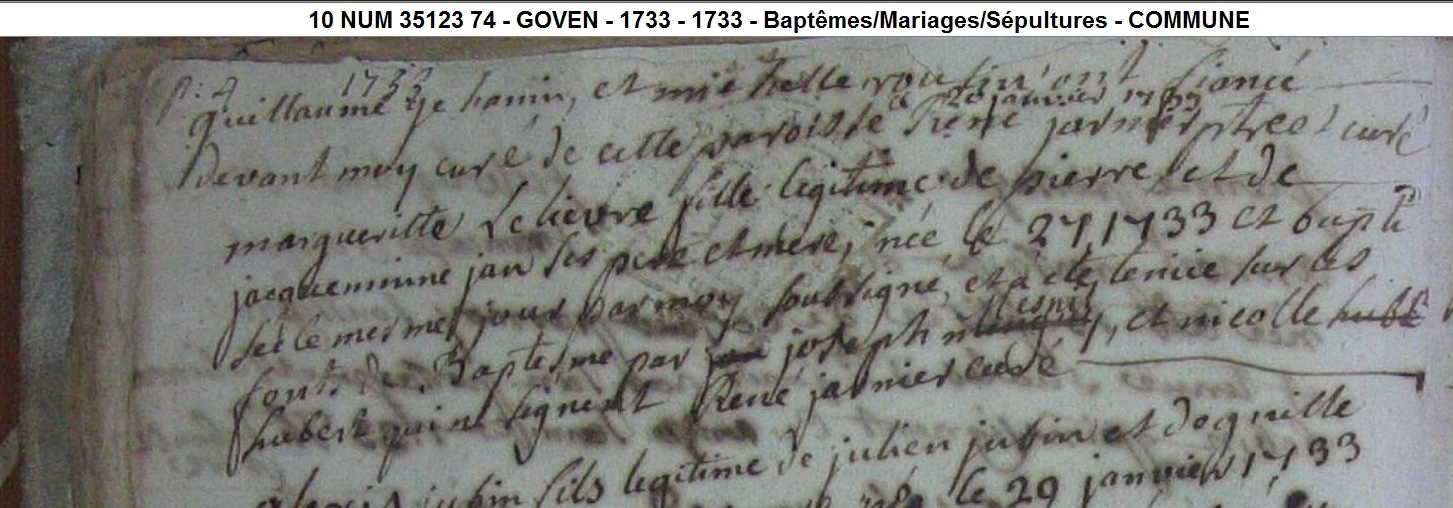 10 NUM 35123 74 - GOVEN - 1733 - 1733 - Baptêmes/Mariages/Sépultures - COMMUNE
p: 4 1733
guillaume et michelle ont fiancé
le 26 janvier 1733
Devant moy curé de cette paroisse René janvier ptre et curé
margueritte Lelievre fille legitime de pierre et de
jacquemine jan ses pere et mere, née le 27, 1733 et bapti
sée le mesme jour par moy soussigné, et a eté tenüe sur les
fonts de Baptesme par joseph et nicolle hube
hubert qui ne signent René janvier curé
alexis jubin fils legitime de julien jubin et
le 29 janvier 1733